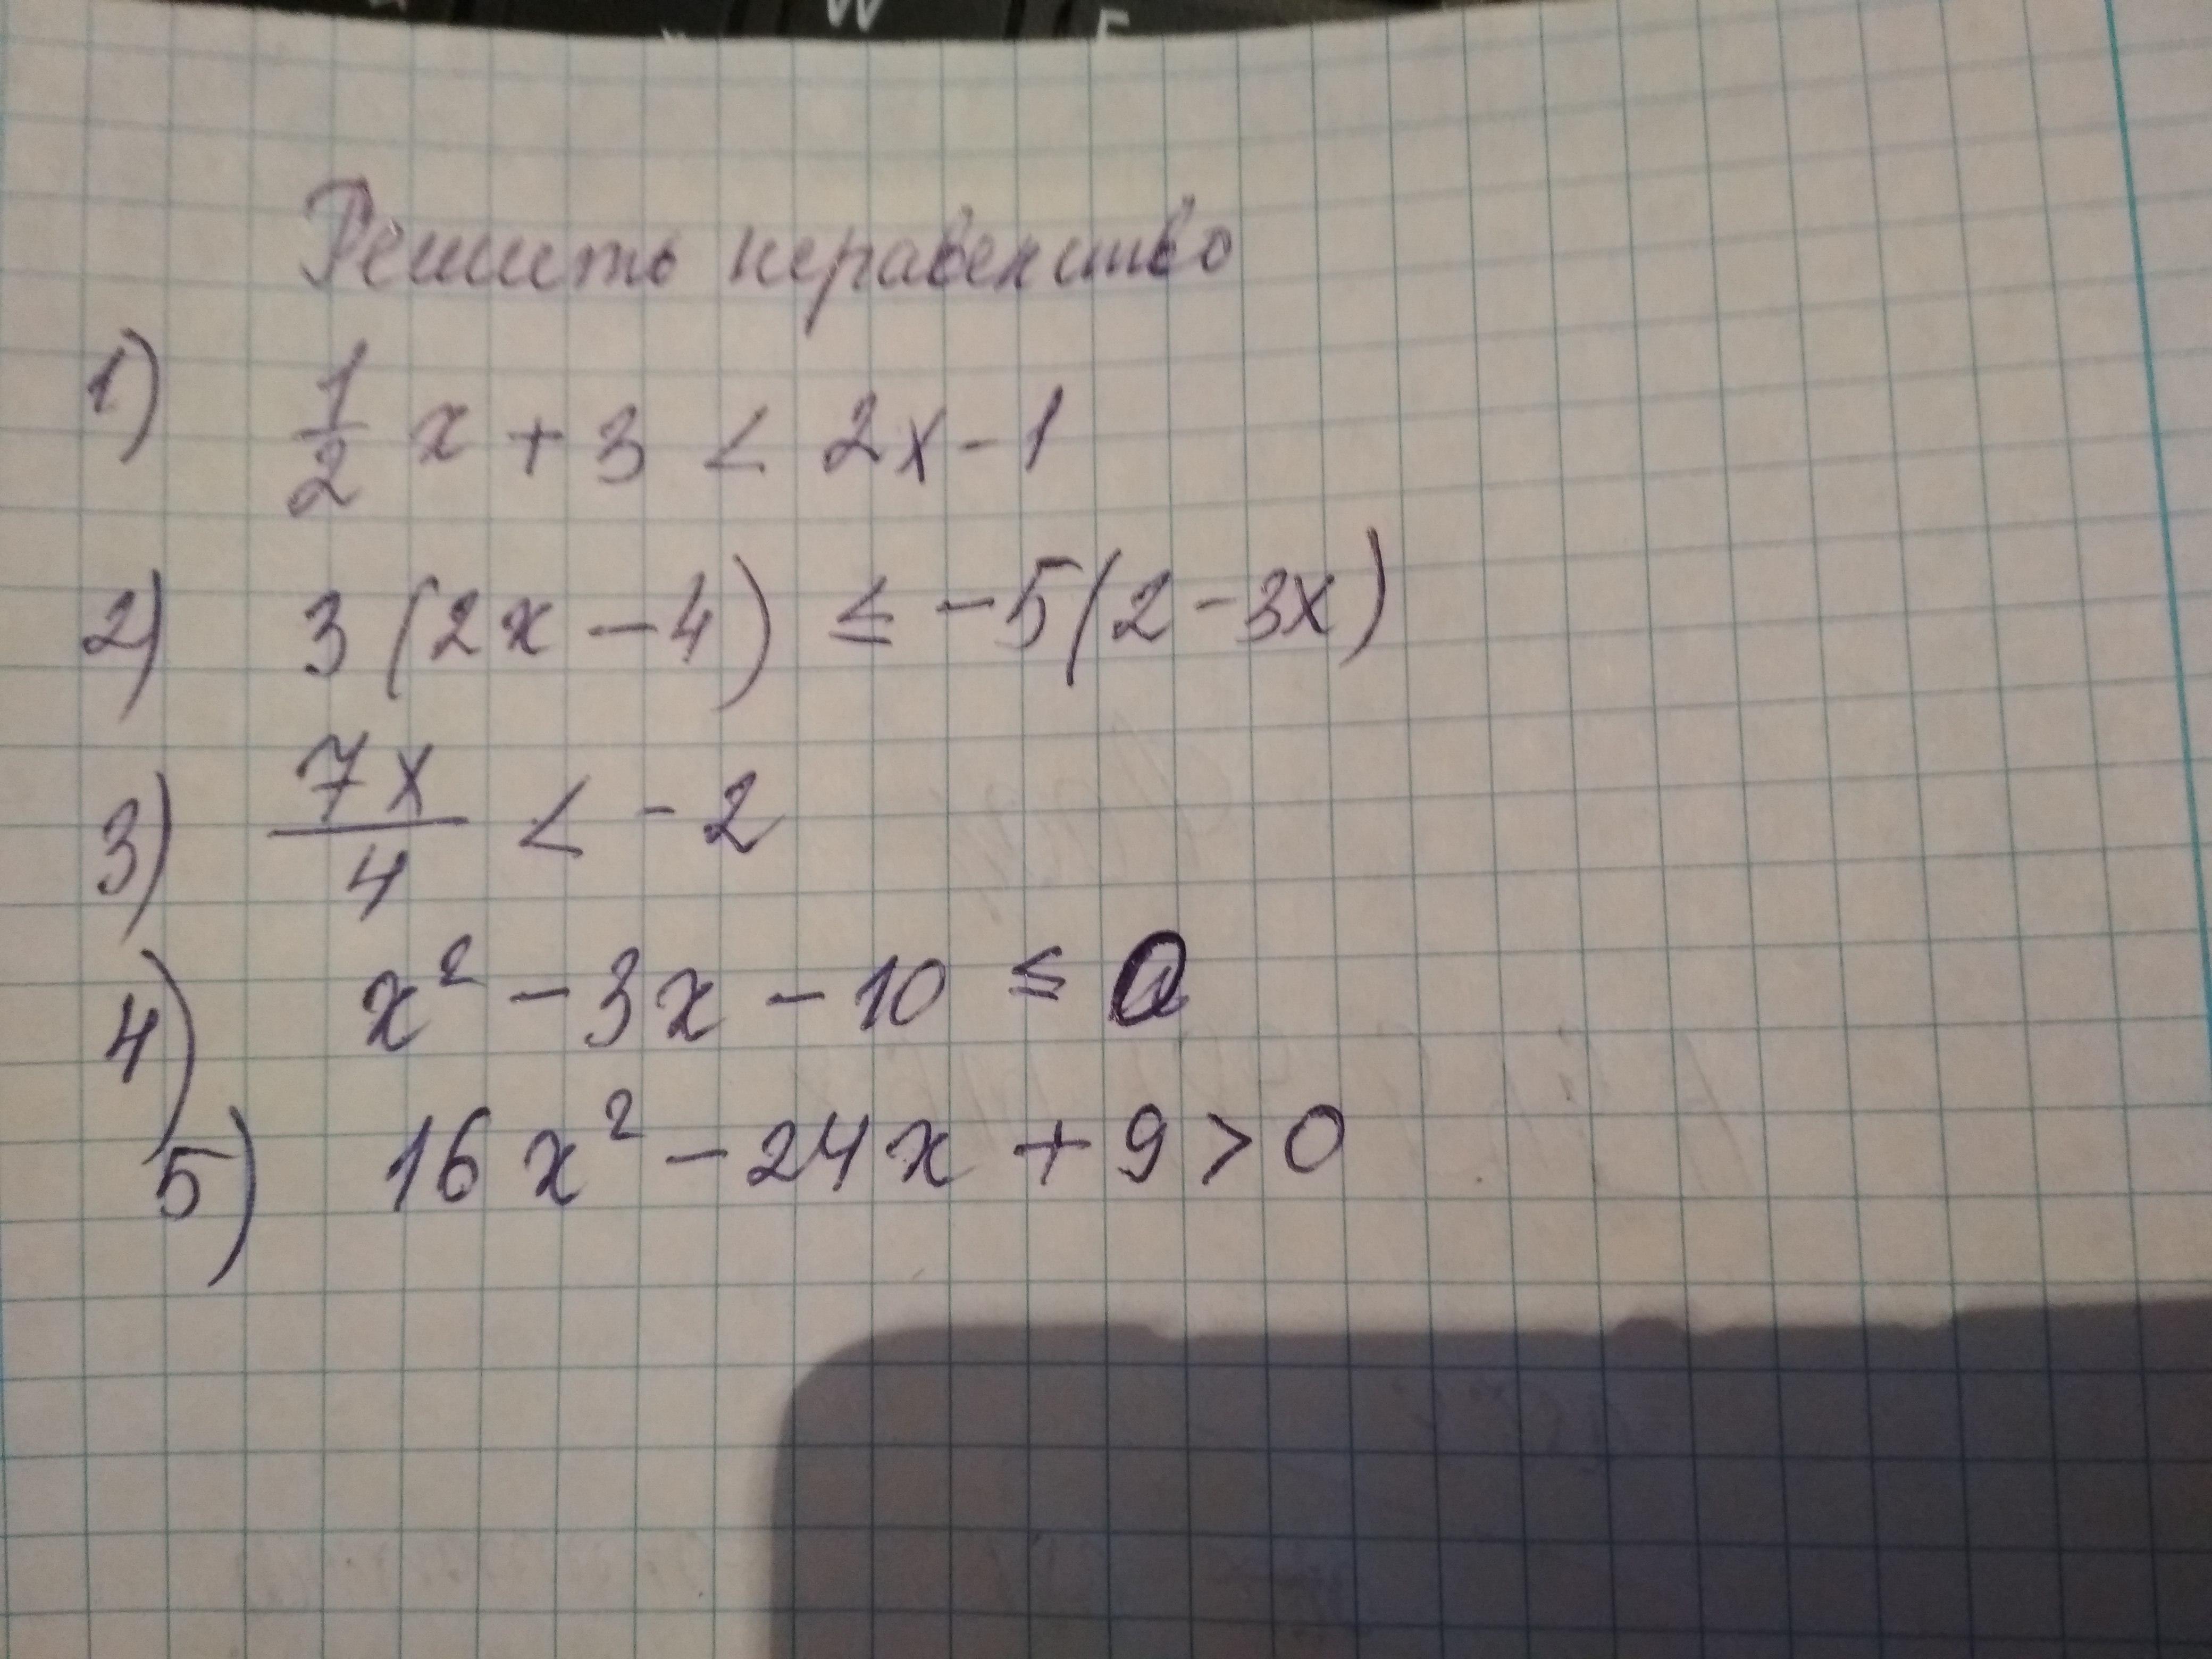 Решить неравенство
1) 1/2 x + 3 < 2x - 1
2) 3 (2x - 4) ≤ -5(2 - 3x)
3) 7x/4 < -2
4) x² - 3x - 10 ≤ 0
5) 16x² - 24x + 9 > 0